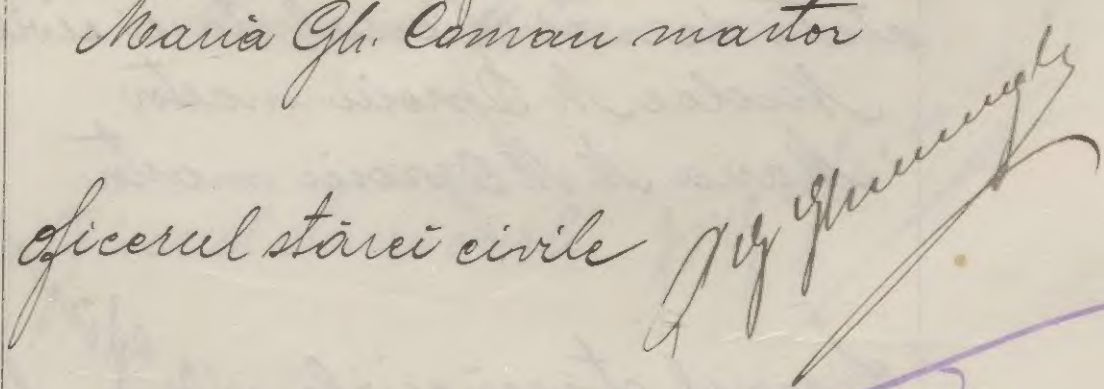 Maria Gh. Coman martor
oficerul stărei civile